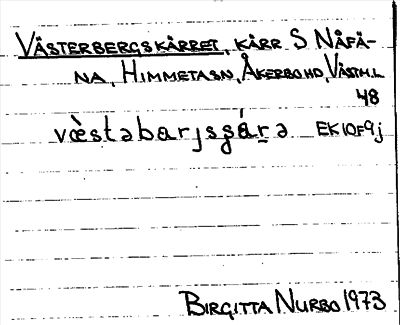 VÄSTERBERGSKÄRRET, KÄRR S NÅFÄ-
NA, HIMMETA SN, ÅKERBO HD, VÄSTM.L
48
væ̀stəbarjsgárə EK 10F9j
BIRGITTA NURBO 1973